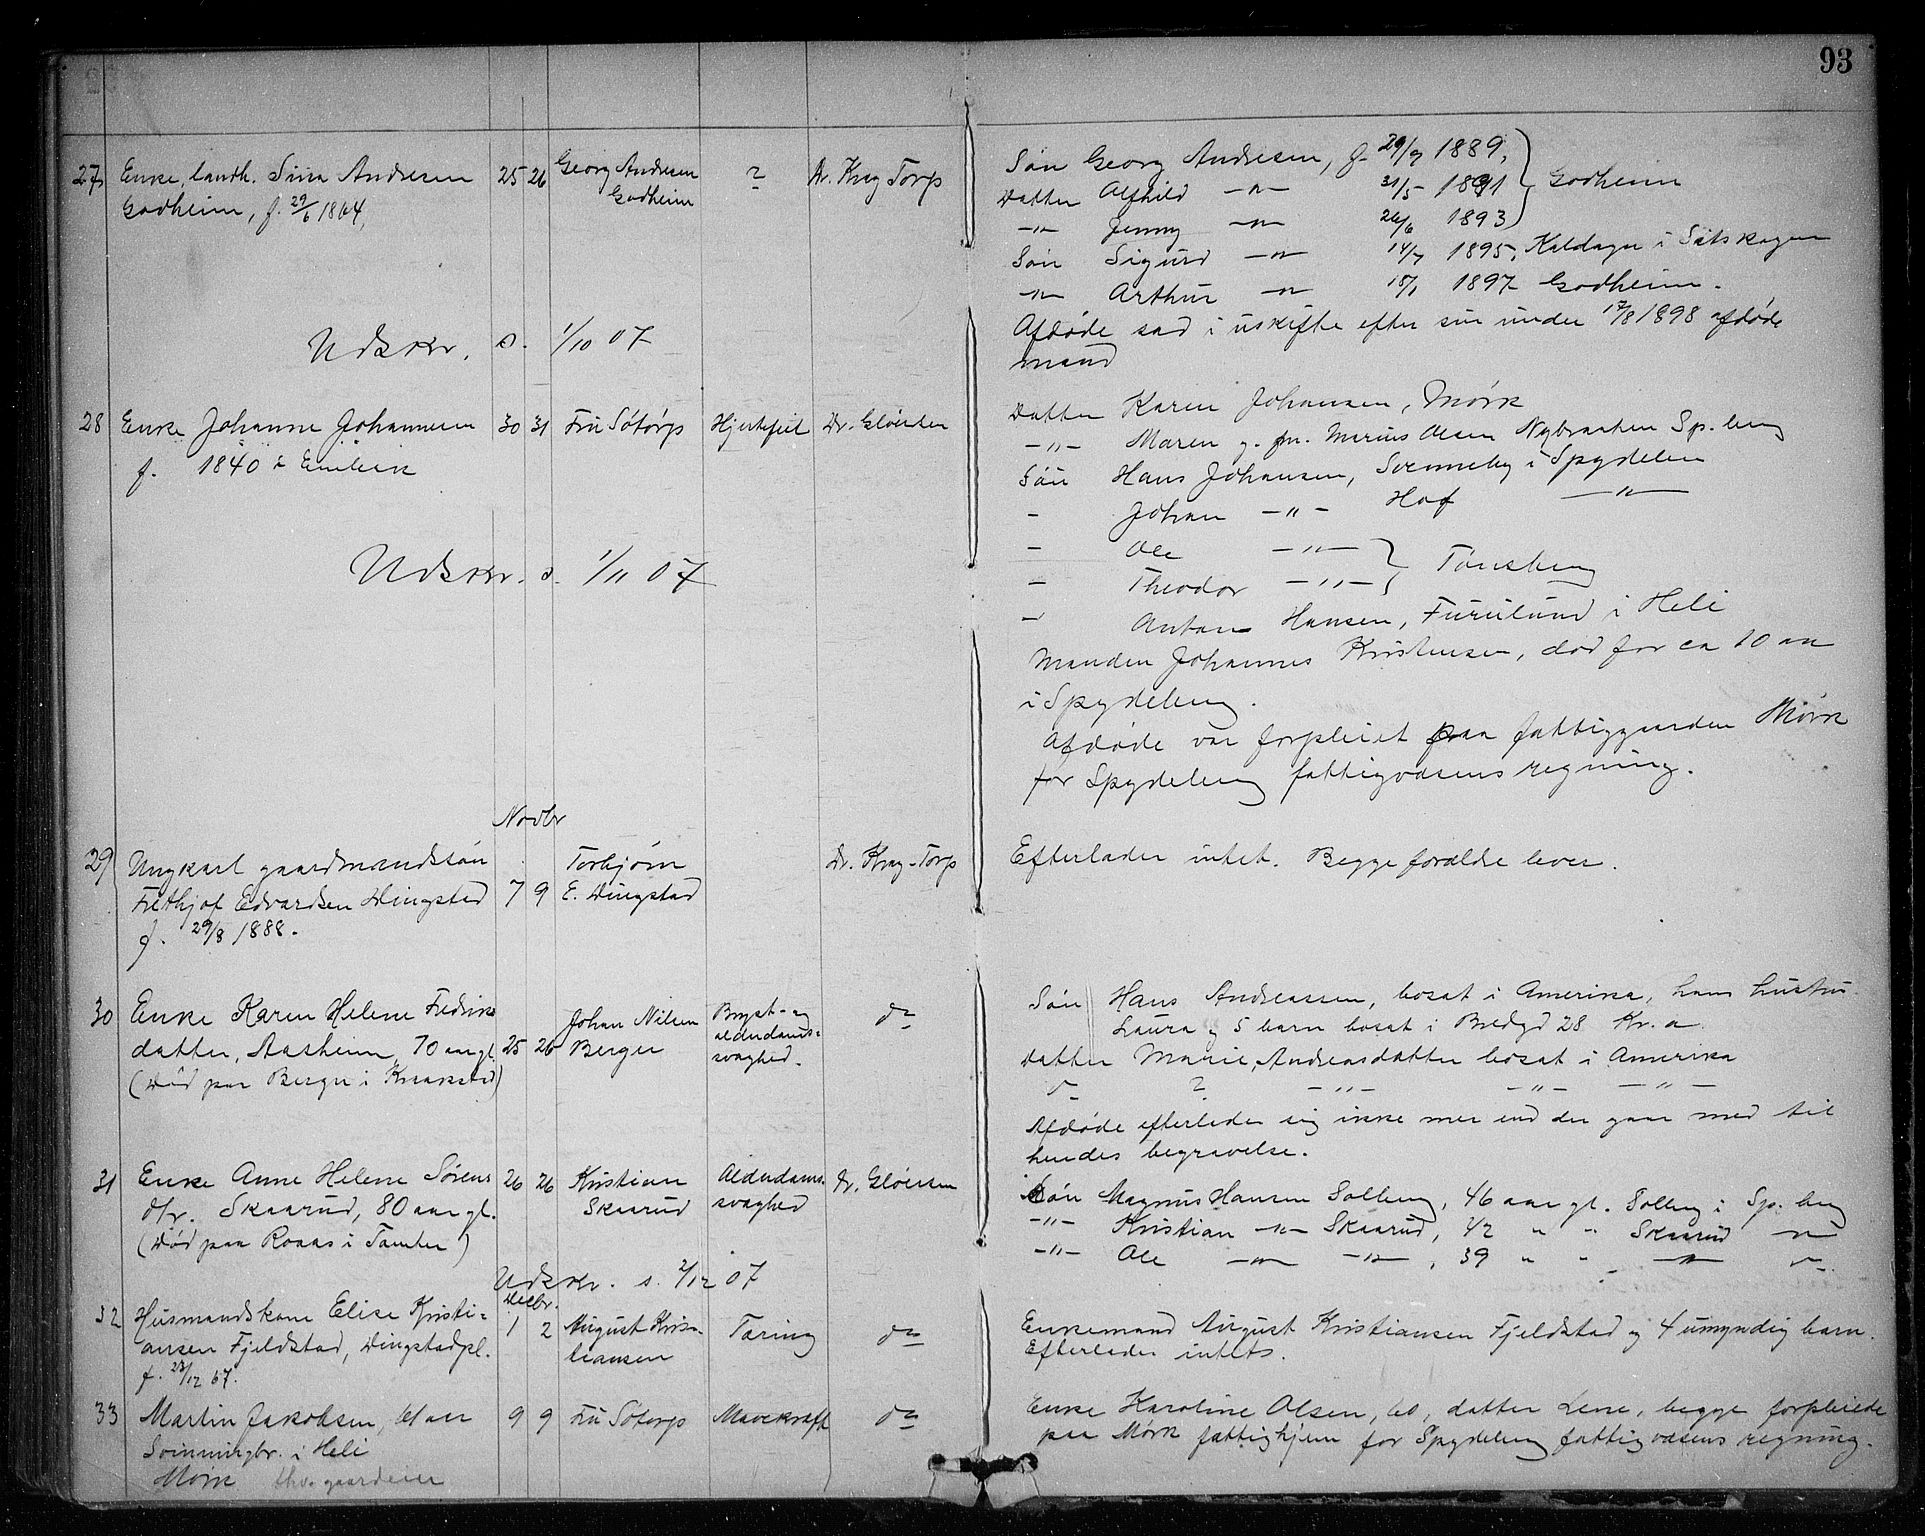 93
27 Enke, landh. Sina Andresen 25 26 Georg Andresen ? Dr. Krag Torp Søn Georg Andresen, f. 29/7 1889,
Godheim, f. 29/6 1864, Godheim Datter Alfhild -"- 31/5 1891 Godheim
-"- Jenny -"- 26/6 1893
Søn Sigurd -"- 14/7 1895, i
-"- Arthur -"- 18/1 1897 Godheim.
Afdøde sad i uskifte efter sin under 17/8 1898 afdøde
mand
Udskr. s. 1/10 07
28 Enke Johanne Johannesen 30 31 Fru Søtorp Hjertefeil Dr. Gløersen Datter Karen Johansen, Mørk
f. 1840 i -"- Maren g. m. Marius Olsen Nybraaten Sp.berg
Søn Hans Johansen, Svenneby i Spydeberg
- Johan -"- Hof -"-
- Ole -"- Tønsberg
- Theodor -"-
- Anton Hansen, Furulund i Heli
Manden Johannes Kristensen, død for ca 10 aar
i Spydeberg.
Afdøde var forpleiet paa fattiggaarden Mørk
for Spydeberg fattigvæsens regning.
Udskr. s. 1/11 07
Novbr
29 Ungkarl gaardmandsøn Torbjørn Dr. Krag-Torp Efterlader intet. Begge forældre lever.
Frithjof Edvardsen Dingstad 7 9 E. Dingstad
f. 29/8 1888.
30 Enke Karen Helene Fredriks Johan Nilsen Bryst- og do Søn Hans Andreassen, bosat i Amerika, hans hustru
datter, Aasheim, 70 aar gl. 25 26 Berger alderdoms= Laura og 5 barn bosat i Bredgd 28 Kr.a.
(Død paa Berger i Kraakstad) svaghed. Datter Marie Andreasdatter bosat i Amerika
do ? -"- -"- -"-
Afdøde efterlader sig ikke mer end der gaar med til
hendes begravelse.
31 Enke Anne Helene Sørens 26 26 Kristian Alderdoms- Dr. Gløersen Søn Magnus Hansen Solberg, 46 aar gl. Solberg i Sp.berg
d/r. Skaarud, 80 aar gl. Skaarud svaghed -"- Kristian -"- Skaarud, 42 " " Skaarud -"-
(Død paa Roaas i Tomter) -"- Ole -"- -"-, 39 " " -"- do
Udskr. s. 2/12 07
Decbr.
32 Husmandskone Elise Kristi= 1 2 August Kris- Tæring do Enkemand August Kristiansen Fjeldstad og 4 umyndig barn.
ansen Fjeldstad, Dingstadpl. tiansen Efterlader intet.
f. 23/12 67.
33 Martin Jakobsen, 61 aar 9 9 Fru Søtorp Mavekræft do Enke Karoline Olsen, 60, datter Lene, begge forpleiede
i Heli paa Mørk fattighjem for Spydeberg fattigvæsens regning.
Mørk fhv. gaardeier